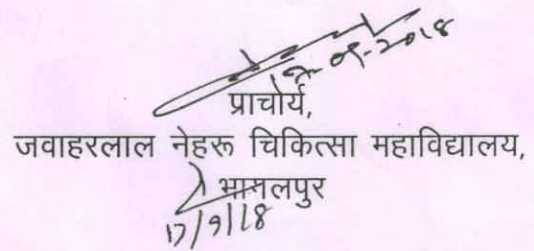 17-09-2018
प्राचार्य,
जवाहरलाल नेहरू चिकित्सा महाविद्यालय,
भागलपुर
17/9/18